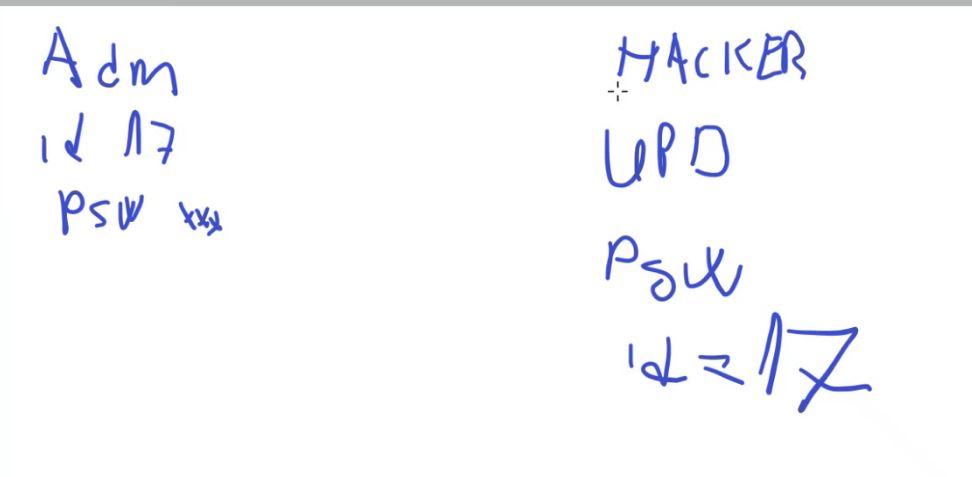 Adm
id 17
psw xxx
HACKER
UPD
Psw
id = 17